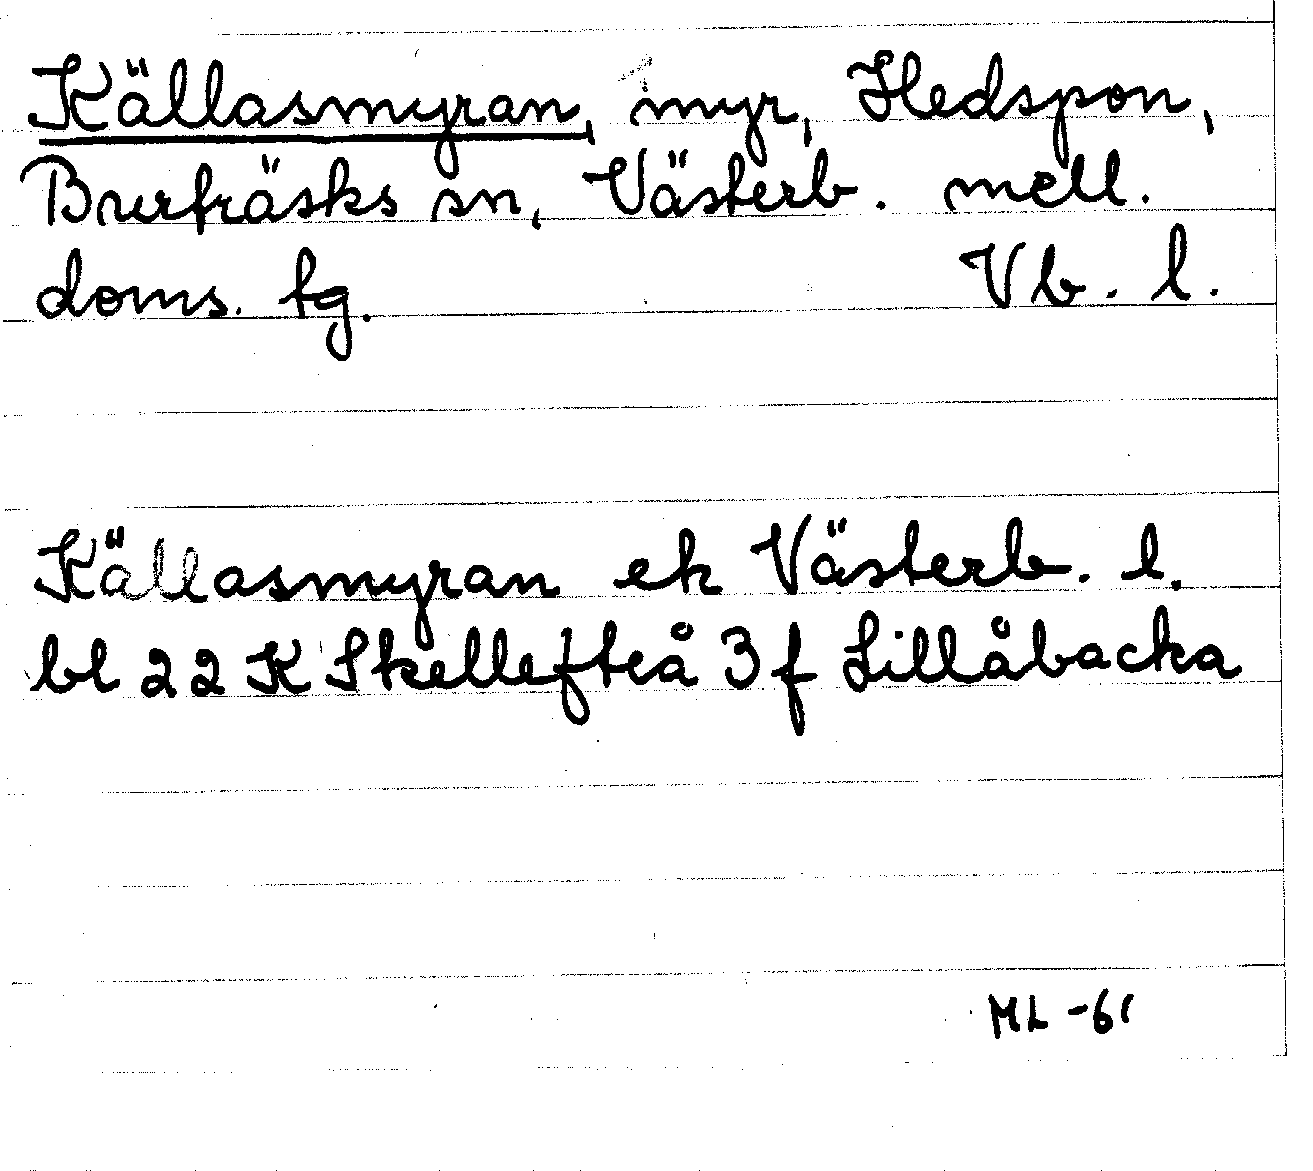 Källasmyran, myr, Hedspon,
Burträsks sn, Västerb. mell.
doms. tg. Vb. l.
Källasmyran ek Västerb. l.
bl 22 K Skellefteå 3 f Lillåbacka
ML -61